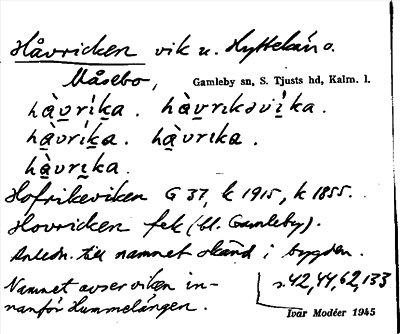 Håvricken vik u. Hyttelån o.
Måsebo, Gamleby sn, S. Tjusts hd, Kalm. l.
hàvríka. hàvrikəvíka.
hàvríka. hàvrika.
hàvrika.
Hofrikeviken G 37, k 1915, k 1855.
Hovricken fek (bl. Gamleby).
Anledn. till namnet okänd i bygden.
Namnet avser viken in- s. 42, 44, 62, 133
nanför Hummelången.
Ivar Modéer 1945